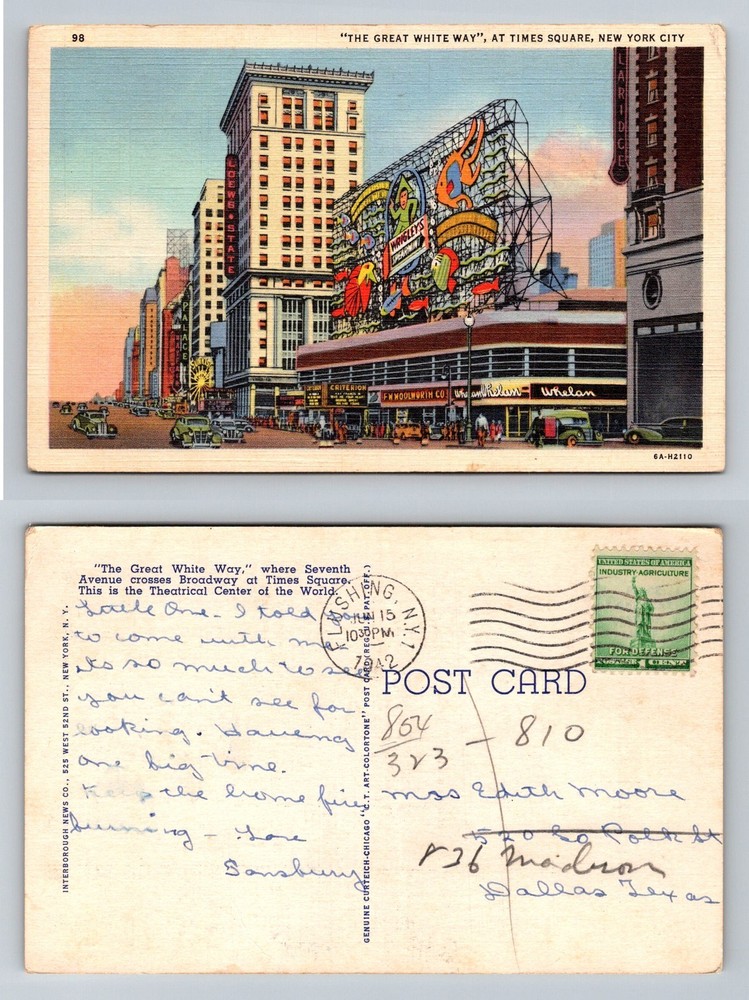 98
"THE GREAT WHITE WAY", AT TIMES SQUARE, NEW YORK CITY
CLARIDGE
LOEWS STATE
PALACE
WRIGLEY'S
SPEARMINT
CRITERION
F.W. WOOLWORTH CO.
Whelan
Whelan
6A-H2110
"The Great White Way," where Seventh
Avenue crosses Broadway at Times Square.
This is the Theatrical Center of the World.
Little One - I told you
to come with me
its so much to see
you can't see for
looking. Having
one big time.
Keep the home fires
burning - Love
Sansbury
INTERBOROUGH NEWS CO., 525 WEST 52ND ST., NEW YORK, N. Y.
GENUINE CURTEICH-CHICAGO "C.T. ART-COLORTONE" POST CARD (REG. U.S. PAT. OFF.)
FLUSHING, N.Y. 1
JUN 15
1030 PM
1942
UNITED STATES OF AMERICA
INDUSTRY-AGRICULTURE
FOR DEFENSE
POSTAGE 1 CENT
POST CARD
864
323 - 810
Miss Edith Moore
520 So Polk St
836 Madison
Dallas Texas